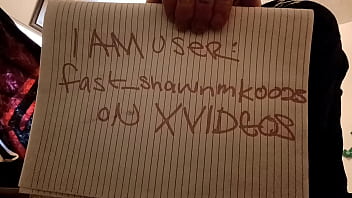 I AM user:
fast_shawnmk0025
ON XVIDEOS